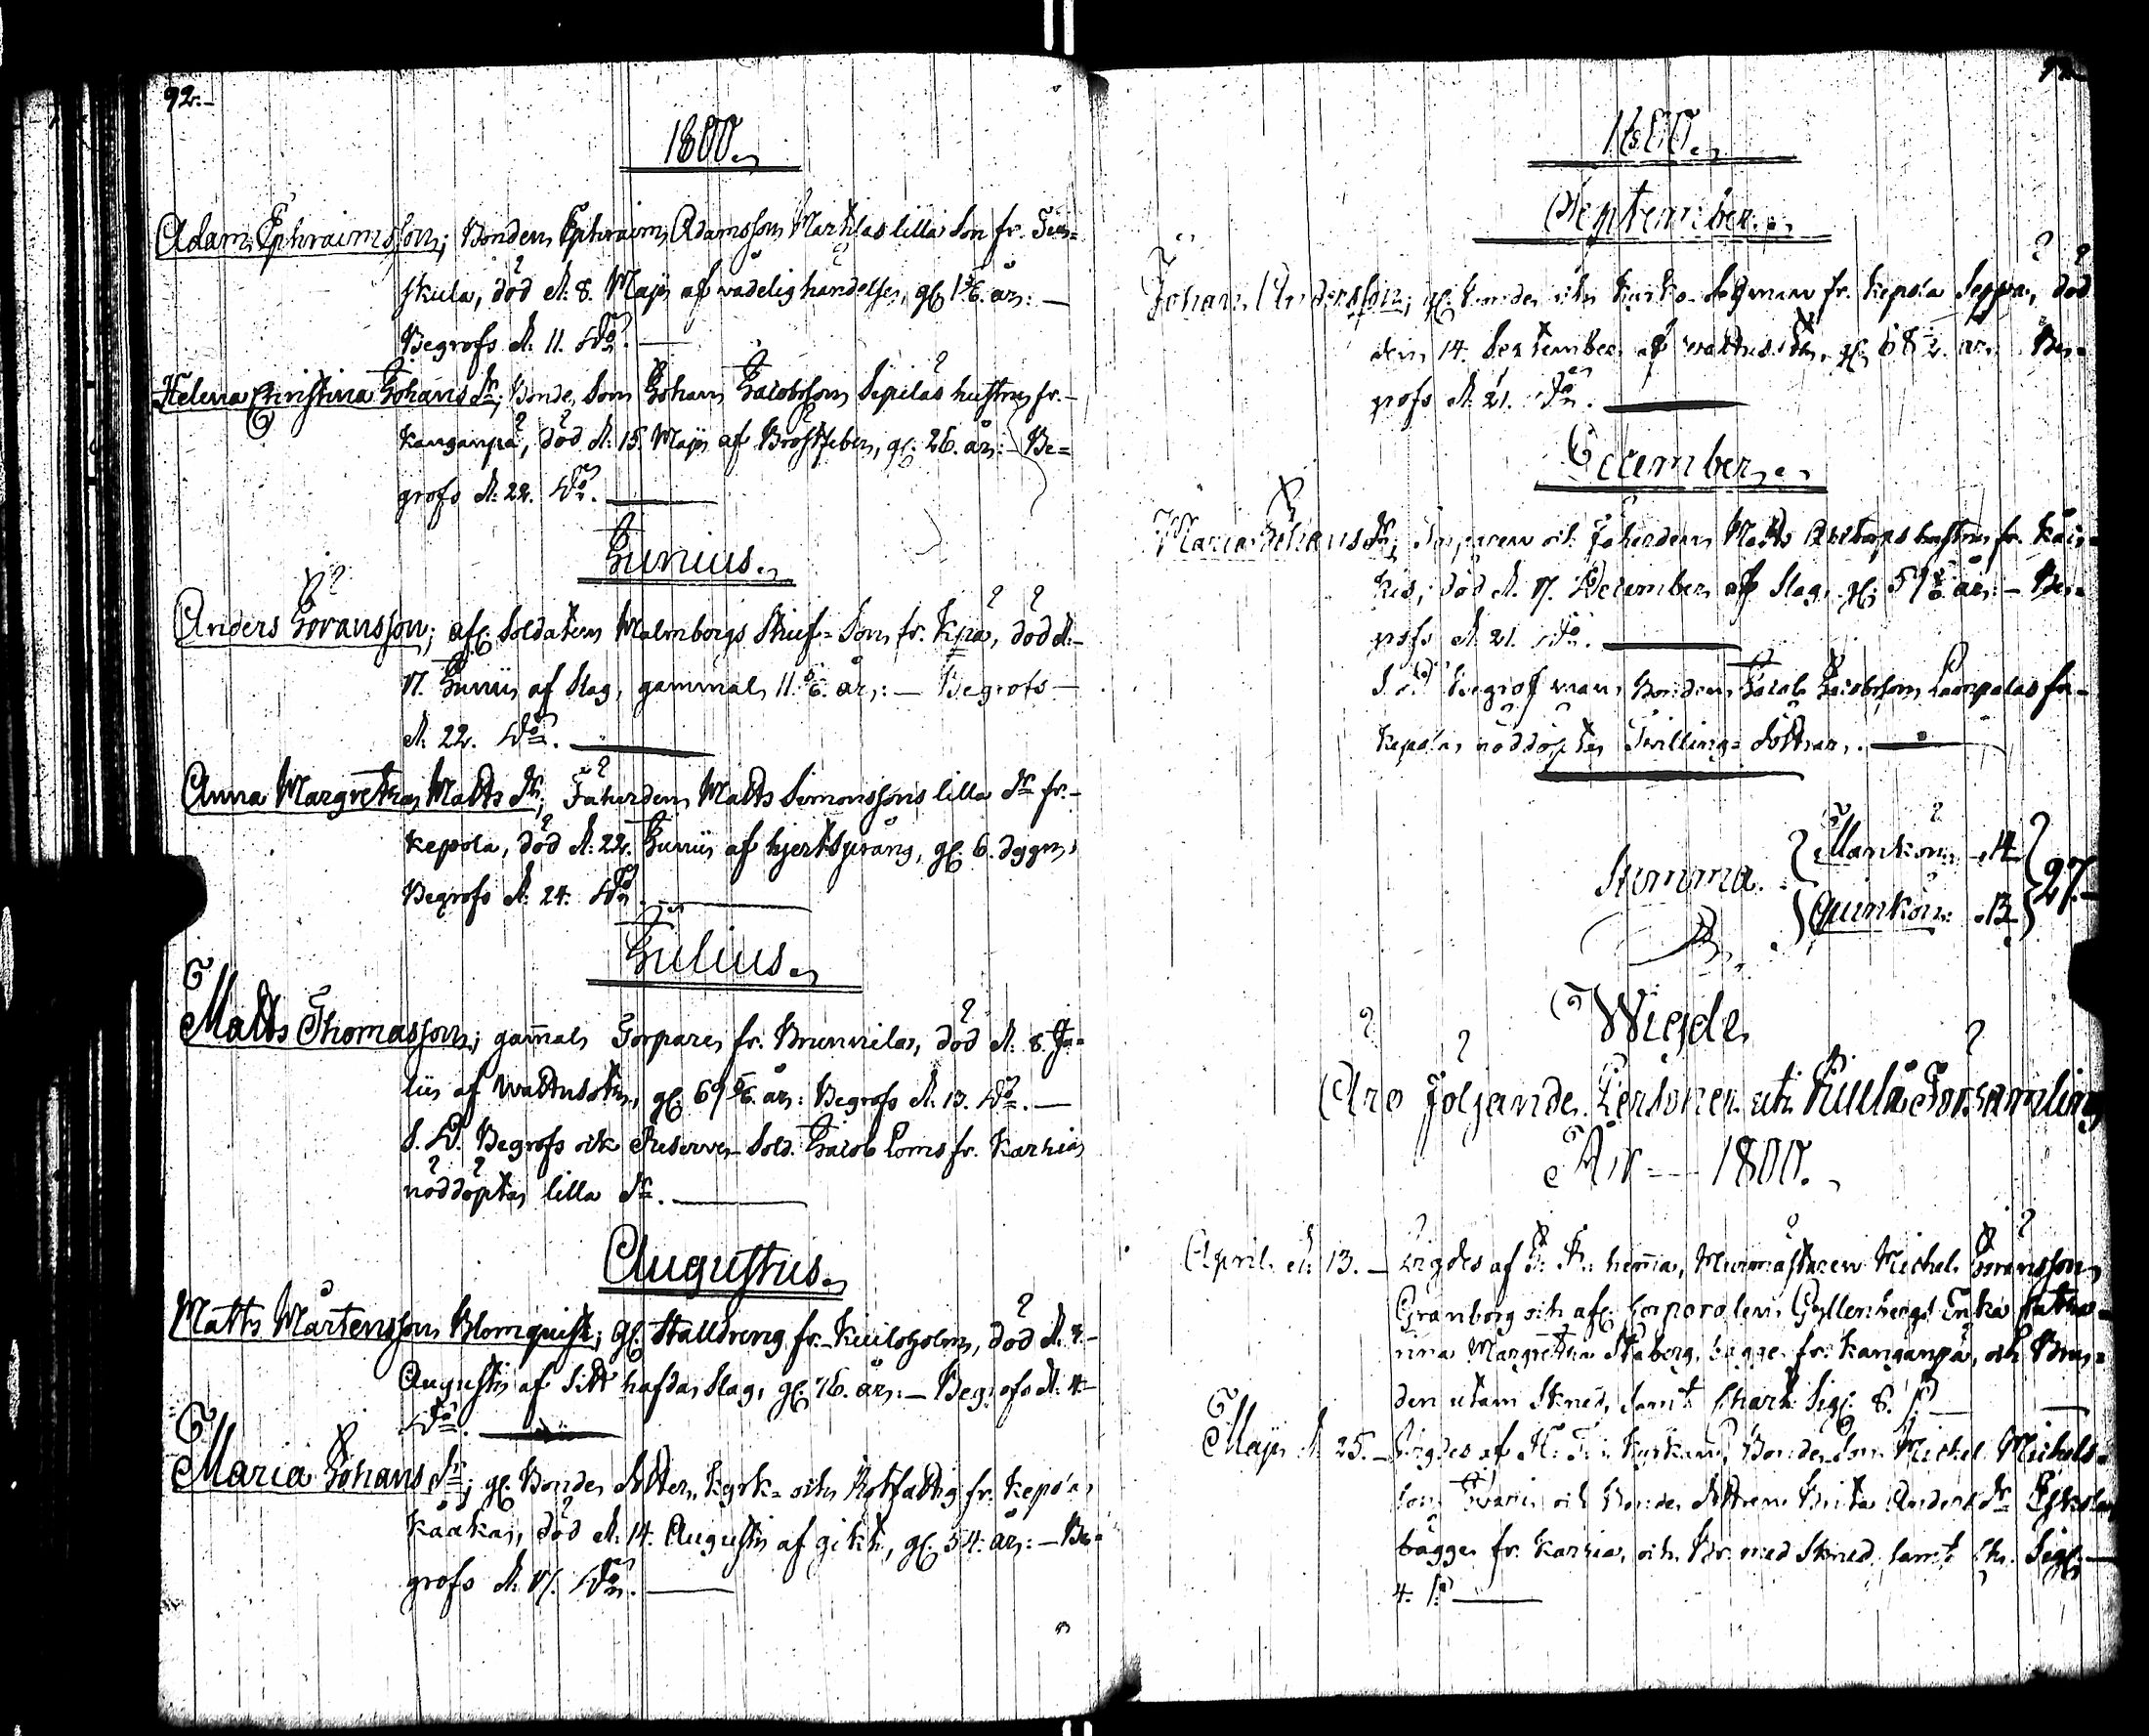 92.
1800.
Adam Ephraimsson; Bonden Ephraim Adamsson Marttilas lilla Son fr.
skula, död d. 8. Maji af vådelig händelse, gl. år: —
Begrofs d. 11. Do. —
Helena Christina Johans Dr; Bonde Son Johan Jacobsson Sepilas hustru fr.
Kanganpä, död d. 15. Maji af Bröstfeber, gl: 26. år: — Be=
grofs d. 22. Do. —
Junius.
Anders Göransson; afl: Soldaten Malmborgs Stiuf=Son fr. död d.
17. Junii af Slag, gammal 11. år: — Begrofs —
d. 22. Do. —
Anna Margretha Matts Dr; Fäherden Matts Simonssons lilla Dr fr.
Kepola, död d. 22. Junii af hjertsprång, gl: 6. dygn,
Begrofs d. 24. Do. —
Julius.
Matts Thomasson; gam̄al Torpare fr. Brunnila, död d. 8. Ju=
lii af Wattusoten, gl: 69 år: Begrofs d. 13. Do. —
S. D. Begrofs ock Reserve Sold. Jacob Loms fr. Karhia
nöddöpta lilla Dr. —
Augustus.
Matts Mårtensson Blomquist; gl: Stalldreng fr. Kuiloholm, död d.
Augusti af Sitt hafda Slag, gl: 76. år: — Begrofs d. 4.
Do. —
Maria Johans Dr; gl: Bonde Dotter, Kyrk= och Rotfattig fr. Kepola
Kaaka, död d. 14. Augusti af gikt, gl: 54. år: — Be=
grofs d. 17. Do. —
1800.
September.
Johan Andersson; gl: bonde och Kyrko fr. Kepola Seppä, död
den 14. September af Wattusoten, gl: 68 år. Be=
grofs d. 21. Do. —
December.
Maria Johans Dr; Torparen och Fäherden Matts hustru fr.
död d. 17. December af Slag, gl: år: — Be=
grofs d. 21. Do. —
S. D. Begrof man Bonden Jacob Jacobsson fr.
Kepola nöddöpta Tvilling=Döttrar. —
Summa.
Mankön: 14
Quinkön: 13
27.
Wigde
Äro följande Personer uti Kuila Församling
År — 1800.
April d. 13. — Wigdes af hem̄a, Murmästaren Michel Göransson
Granborg och afl: Corporalen Gyllenbergs Enka Catha=
rina Margretha Staberg, bägge fr. Kanganpä, och Bru=
den utom Skrud, samt Chart: Sigl: 8. s. —
Maji d. 25. — Wigdes af Bonde Son Michel Michels=
son och Bonde Dottren Brita Anders Dr
bägge fr. Karhia, och Br. med Skrud, samt Ch. Sigl: —
4. s. —